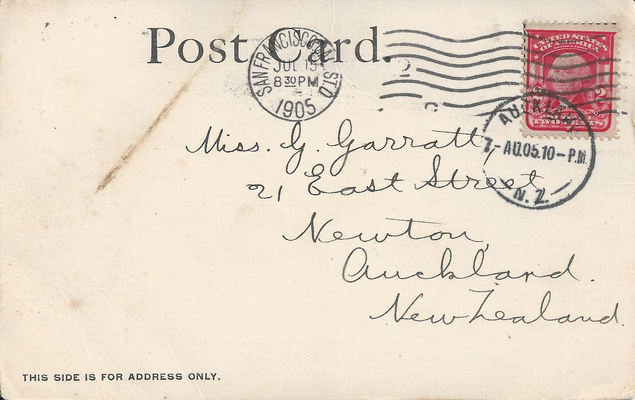 Post Card.
SAN FRANCISCO
JUL 15
8 30 PM
1905
2
C
UNITED STATES
OF AMERICA
TWO CENTS
AUCKLAND
7-AU.05.10-P.M.
N.Z.
Miss. G. Garratt,
21 East Street,
Newton,
Auckland.
New Zealand.
THIS SIDE IS FOR ADDRESS ONLY.